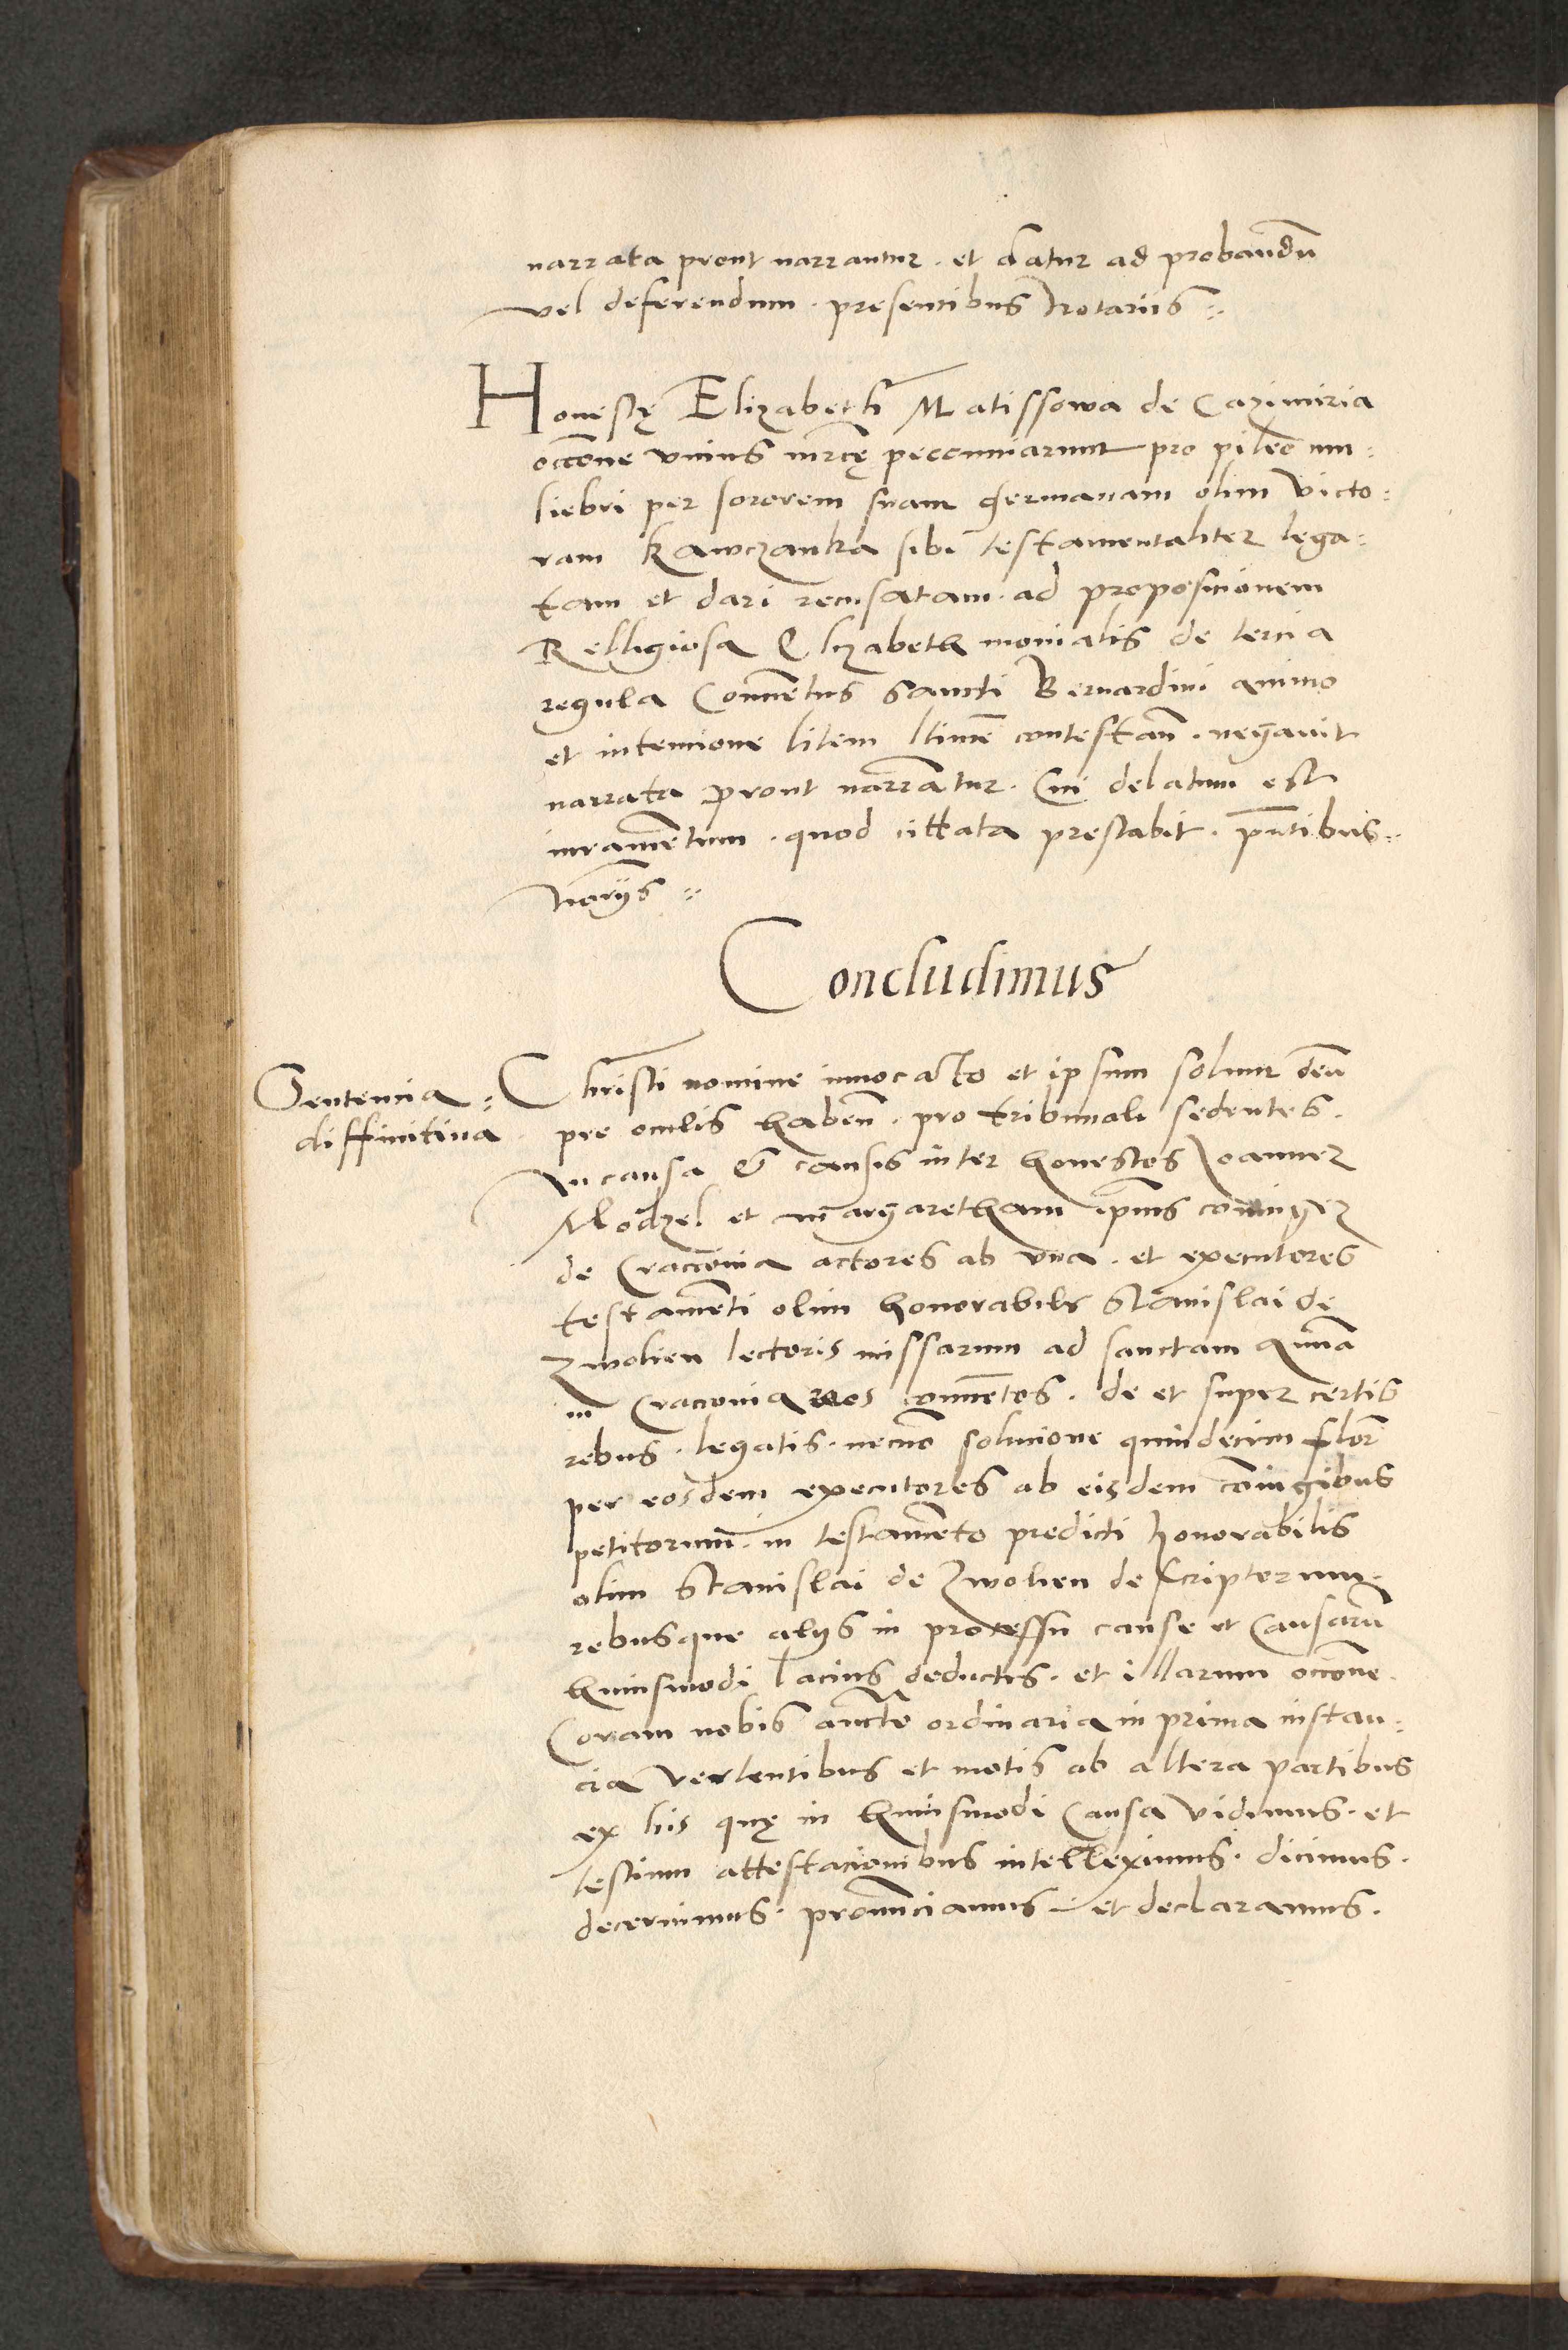 narrata prout narrantur. et datur ad probandū
vel deferendum. presentibus Notariis
Honestę Elizabeth Matissowa de Cazimiria
occōne vnius mrcę peccuniarum pro pileo mu:
liebri per sororem suam germanam olim Victo:
ram Kawczanka sibi testamentaliter lega:
tam et dari recusatam. ad proposicionem
Relligiosa Elizabeth monialis de tercia
regula Conuētus Sancti Bernardini animo
et intencione litem ltime contestan̄. negauit
narrata prout narrātur. Cui delatum est
iuramētum. quod cittata prestabit. pn̄tibus
Noriis
Concludimus
Sentencia
diffinitiua
Christi nomine inuocato et ipsum solum deū
pre oculis haben̄. pro tribunali sedentes.
In causa & causis inter honestos Joannez
Modzel et Margaretham ipīus coniugez
de Craccouia actores ab vna. et executores
testamēti olim honorabilis Stanislai de
Zwolien lectoris missarum ad sanctam Annā
in Craccouia reos conuētos. de et super certis
rebus. legatis. necnō solucione quindecim flor̄
per eosdem executores ab eisdem cōiugibus
petitorum̄. in testamēto predicti honorabilis
olim Stanislai de Zwolien descriptorum
rebusque alijs in processu cause et Causarū
huiusmodi lacius deductis. et illarum occōne.
Coram nobis aucte ordinaria in prima instan:
cia vertentibus et motis ab altera partibus
ex his quę in huiusmodi Causa vidimus. et
testium attestacionibus intelleximus. dicimus.
decernimus. pronūciamus et declaramus.